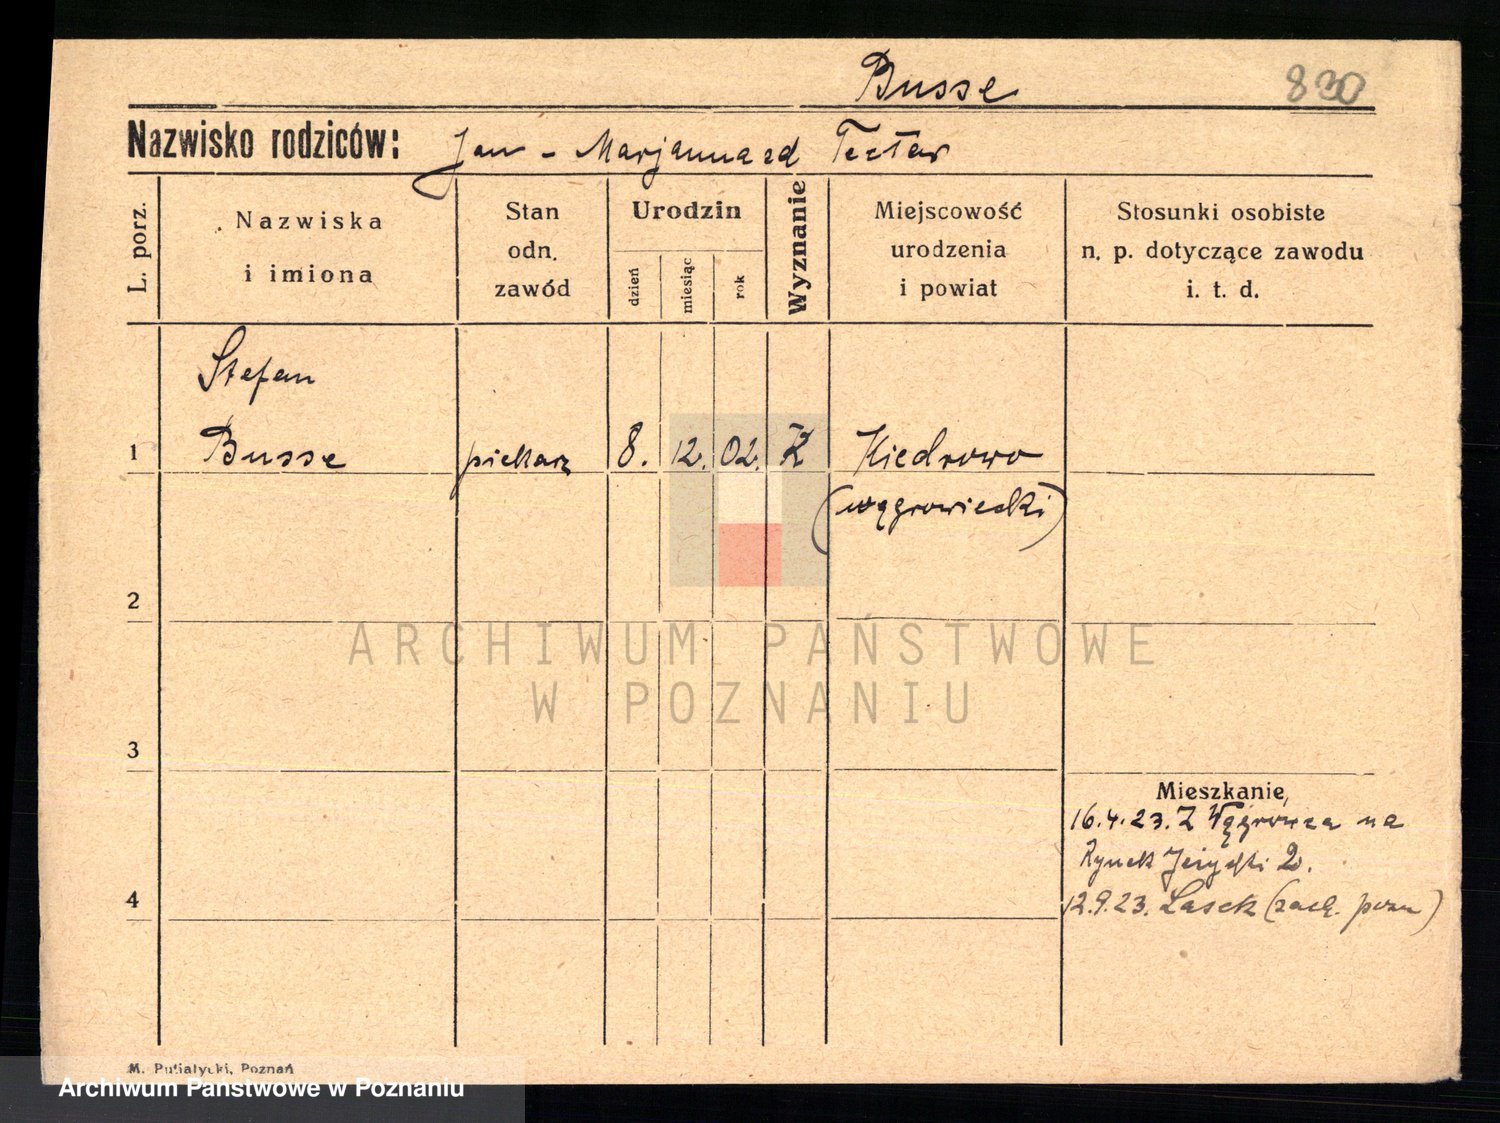 Busse
830
Nazwisko rodziców: Jan - Marjanna zd Tectaw
L. porz.
Nazwiska i imiona
Stan odn. zawód
Urodzin
dzień
miesiąc
rok
Wyznanie
Miejscowość urodzenia i powiat
Stosunki osobiste n. p. dotyczące zawodu i. t. d.
Stefan
1 Busse piekarz 8. 12. 02. K Kiedrowo
(wągrowiecki)
2
3
Mieszkanie
16.4.23. Z Wągrówca na
Rynek Jeżycki 2.
4
12.9.23. Lasek (zach. pozn)
M. Putiatycki, Poznań
ARCHIWUM PAŃSTWOWE
W POZNANIU
Archiwum Państwowe w Poznaniu